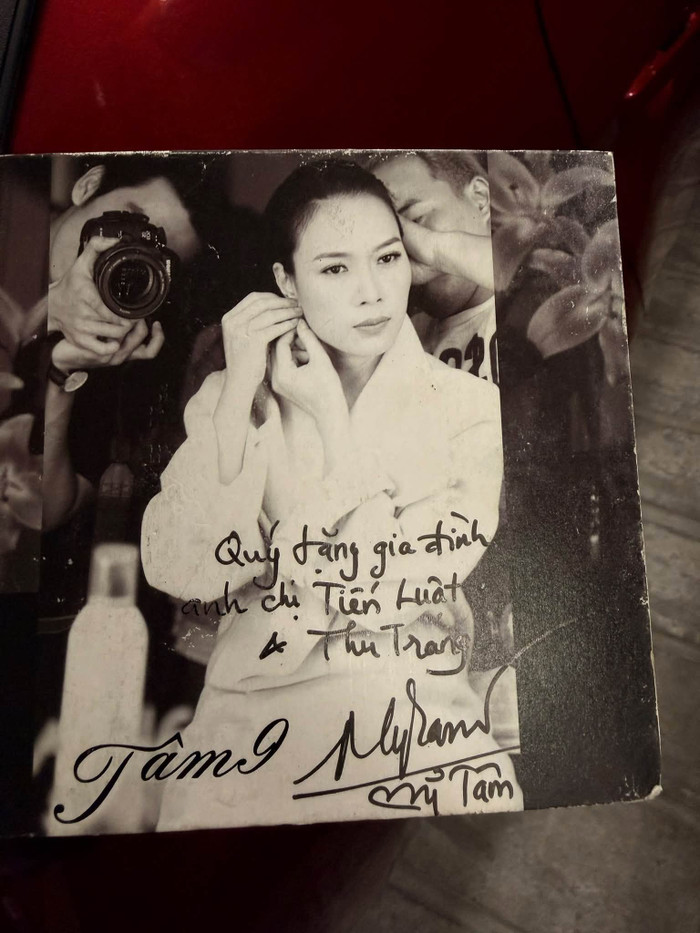 Quý tặng gia đình
anh chị Tiến Luật
& Thu Trang
Tâm 9
Mỹ Tâm